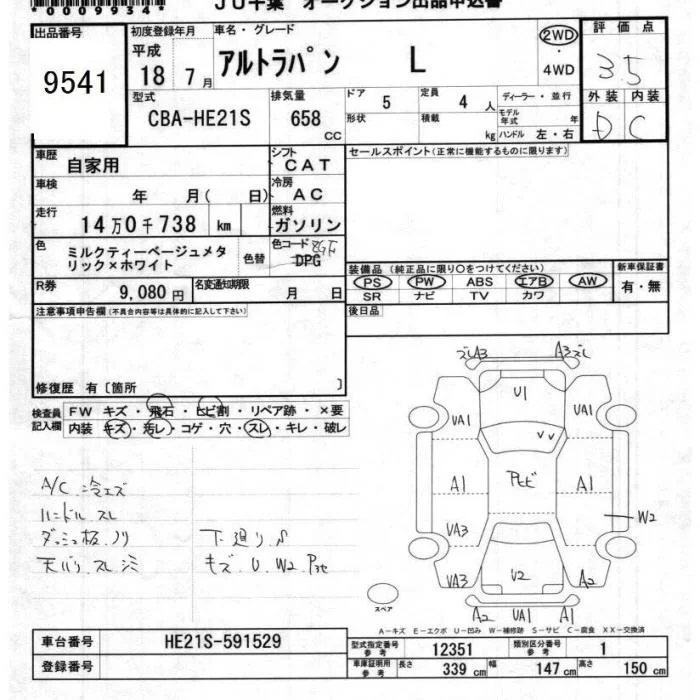 *0009934*
JU千葉 オークション出品申込書
出品番号
9541
初度登録年月
平成
18 7月
車名・グレード
アルトラパン L
2WD
・
4WD
評価点
3.5
外装 内装
D C
型式
CBA-HE21S
排気量
658
CC
ドア 5
定員 4 人
形状
積載 kg
ディーラー・並行
モデル年式 年
ハンドル 左・右
車歴
自家用
シフト
CAT
セールスポイント(正常に機能するものに限ります)
車検
年 月( 日)
冷房
AC
走行
14万0千738 km
燃料
ガソリン
色
ミルクティーベージュメタ
リック×ホワイト
色替
色コード
DPG
装備品(純正品に限り○をつけてください)
PS PW ABS エアB AW
SR ナビ TV カワ
新車保証書
有・無
R券
9,080円
名変通知期限
月 日
注意事項申告欄(不具合内容等は具体的に記入して下さい)
後日品
修復歴 有〔箇所 〕
検査員
記入欄
FW キズ・飛石・ヒビ割・リペア跡・×要
内装 キズ・汚レ・コゲ・穴・スレ・キレ・破レ
A/C 冷エズ
ハンドル スレ
ダッシュ板 ノリ
天バリ スレ シミ
下廻り S
キズ U W2
ズレA3 A3ズレ
U1
UA1 UA1
A1 A1
W2
UA3
UA3 U2 A2
A2 UA1 A1
スペア
A-キズ E-エクボ U-凹み W-補修跡 S-サビ C-腐食 XX-交換済
車台番号
HE21S-591529
登録番号
型式指定番号
参考
12351
類別区分番号
参考
1
車庫証明用
参考
長さ 339 cm
幅 147 cm
高さ 150 cm